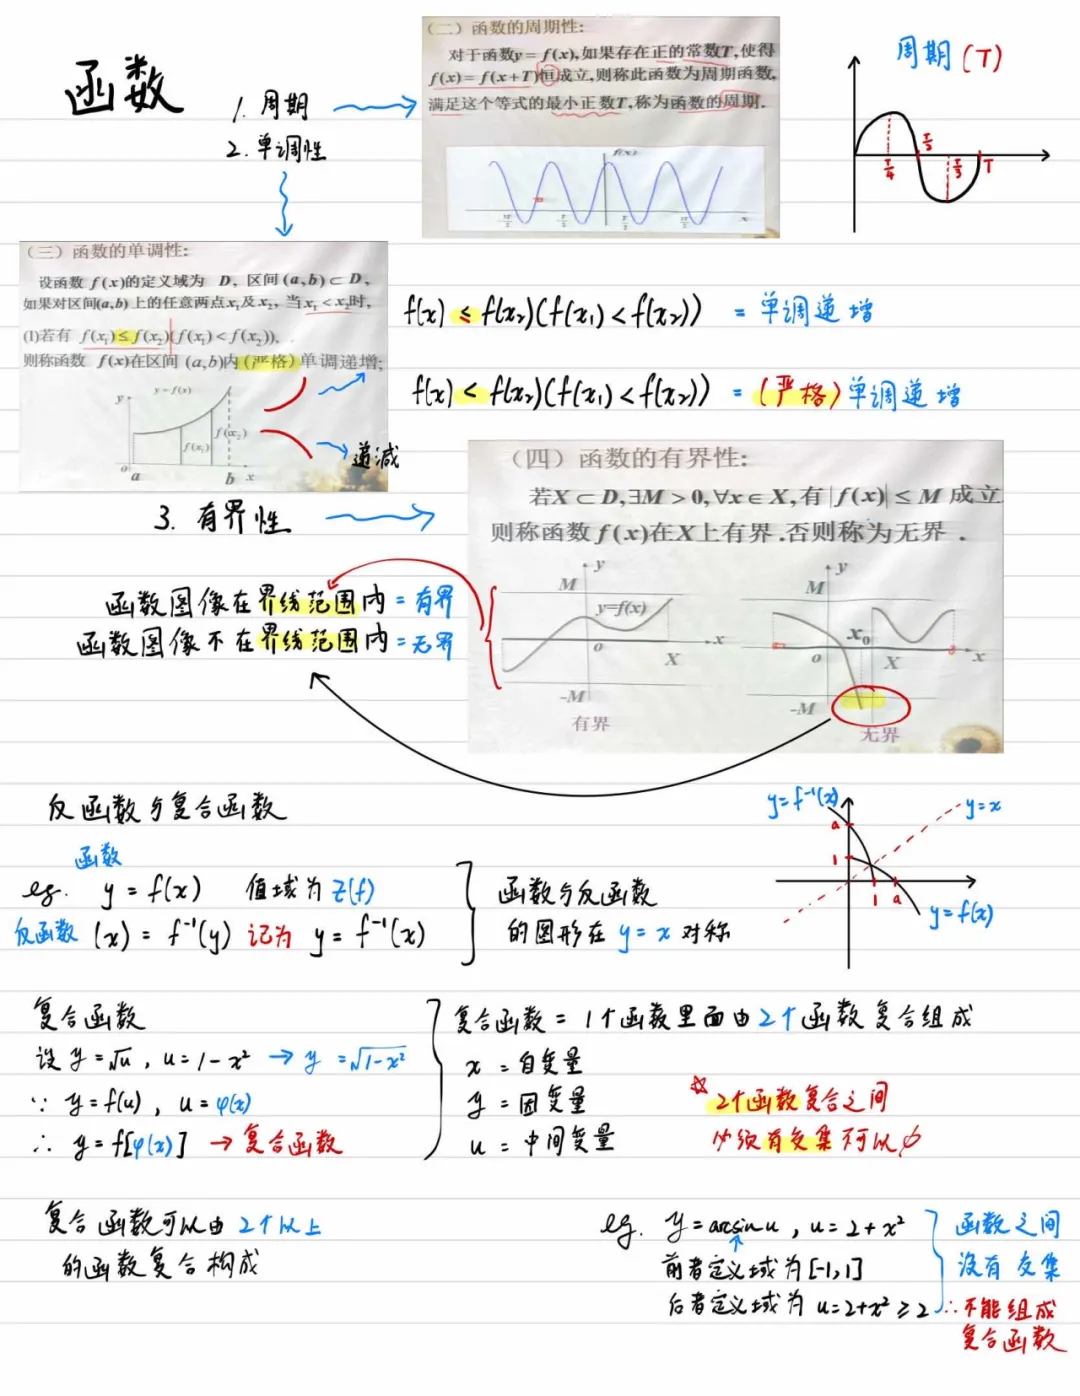 函数
1. 周期
2. 单调性
(二) 函数的周期性:
对于函数y = f(x),如果存在正的常数T,使得
f(x) = f(x+T)恒成立,则称此函数为周期函数,
满足这个等式的最小正数T,称为函数的周期.
f(x)
x
周期(T)
T/4
T/2
T/3
T
(三) 函数的单调性:
设函数 f(x)的定义域为 D, 区间 (a,b) ⊂ D,
如果对区间(a,b)上的任意两点x₁及x₂, 当x₁ < x₂时,
(1)若有 f(x₁) ≤ f(x₂)(f(x₁) < f(x₂)),
则称函数 f(x)在区间 (a,b)内 (严格) 单调递增;
y
y = f(x)
f(x₁)
f(x₂)
o
a
b
x
递减
f(x) ≤ f(x₂)(f(x₁) < f(x₂)) = 单调递增
f(x) < f(x₂)(f(x₁) < f(x₂)) = (严格)单调递增
3. 有界性
(四) 函数的有界性:
若X ⊂ D,∃M > 0,∀x ∈ X,有 |f(x)| ≤ M 成立
则称函数 f(x)在X上有界.否则称为无界 .
M
y
y=f(x)
o
x
X
-M
有界
M
y
x₀
o
X
x
-M
无界
函数图像在界线范围内 = 有界
函数图像不在界线范围内 = 无界
反函数与复合函数
函数
eg. y = f(x) 值域为 Z(f)
反函数 (x) = f⁻¹(y) 记为 y = f⁻¹(x)
函数与反函数
的图形在 y = x 对称
y=f⁻¹(x)
y=x
a
1
1
a
y=f(x)
复合函数
设 y = √u , u = 1 - x² → y = √1-x²
∵ y = f(u) , u = φ(x)
∴ y = f[φ(x)] → 复合函数
复合函数 = 1个函数里面由2个函数复合组成
x = 自变量
y = 因变量
u = 中间变量
☆ 2个函数复合之间
必须有交集不可以∅
复合函数可以由 2个以上
的函数复合构成
eg. y = arcsinu , u = 2 + x²
前者定义域为 [-1,1]
后者定义域为 u = 2+x² ≥ 2
函数之间
没有交集
∴ 不能组成
复合函数